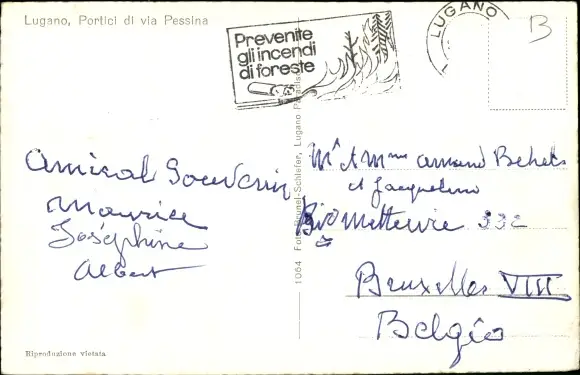 Lugano, Portici di via Pessina
Prevenite
gli incendi
di foreste
LUGANO
B
Amical Souvenir
Maurice
Joséphine
Albert
Mr & Mme Armand
et Jacqueline
332
Bruxelles VIII
Belgio
1064 Foto Brunel-Schiefer, Lugano Paradiso
Riproduzione vietata